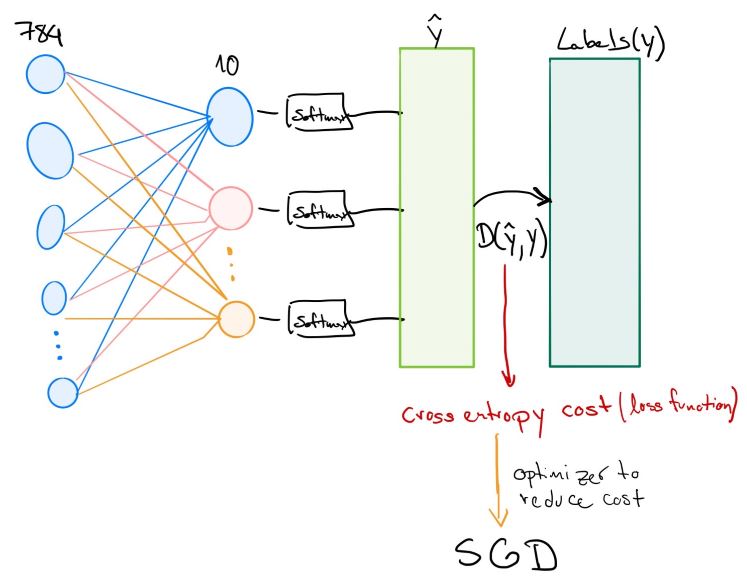 784
10
Ŷ
Labels(y)
Softmax
Softmax
Softmax
D(ŷ,y)
cross entropy cost (loss function)
optimizer to
reduce cost
SGD